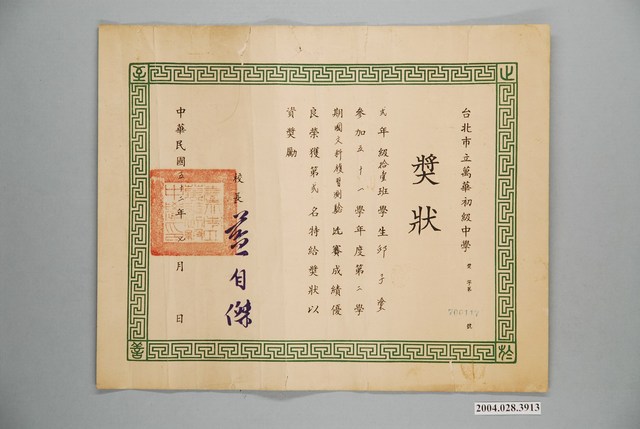 台北市立萬華初級中學
獎狀
獎 字第
號
貳年級拾壹班學生邱子
參加五十一學年度第二學
期國文科題習測驗比賽成績優
良榮獲第貳名特給獎狀以
資獎勵
校長
藍自傑
中華民國五十二年 月 日
止
於
至
善
2004.028.3913